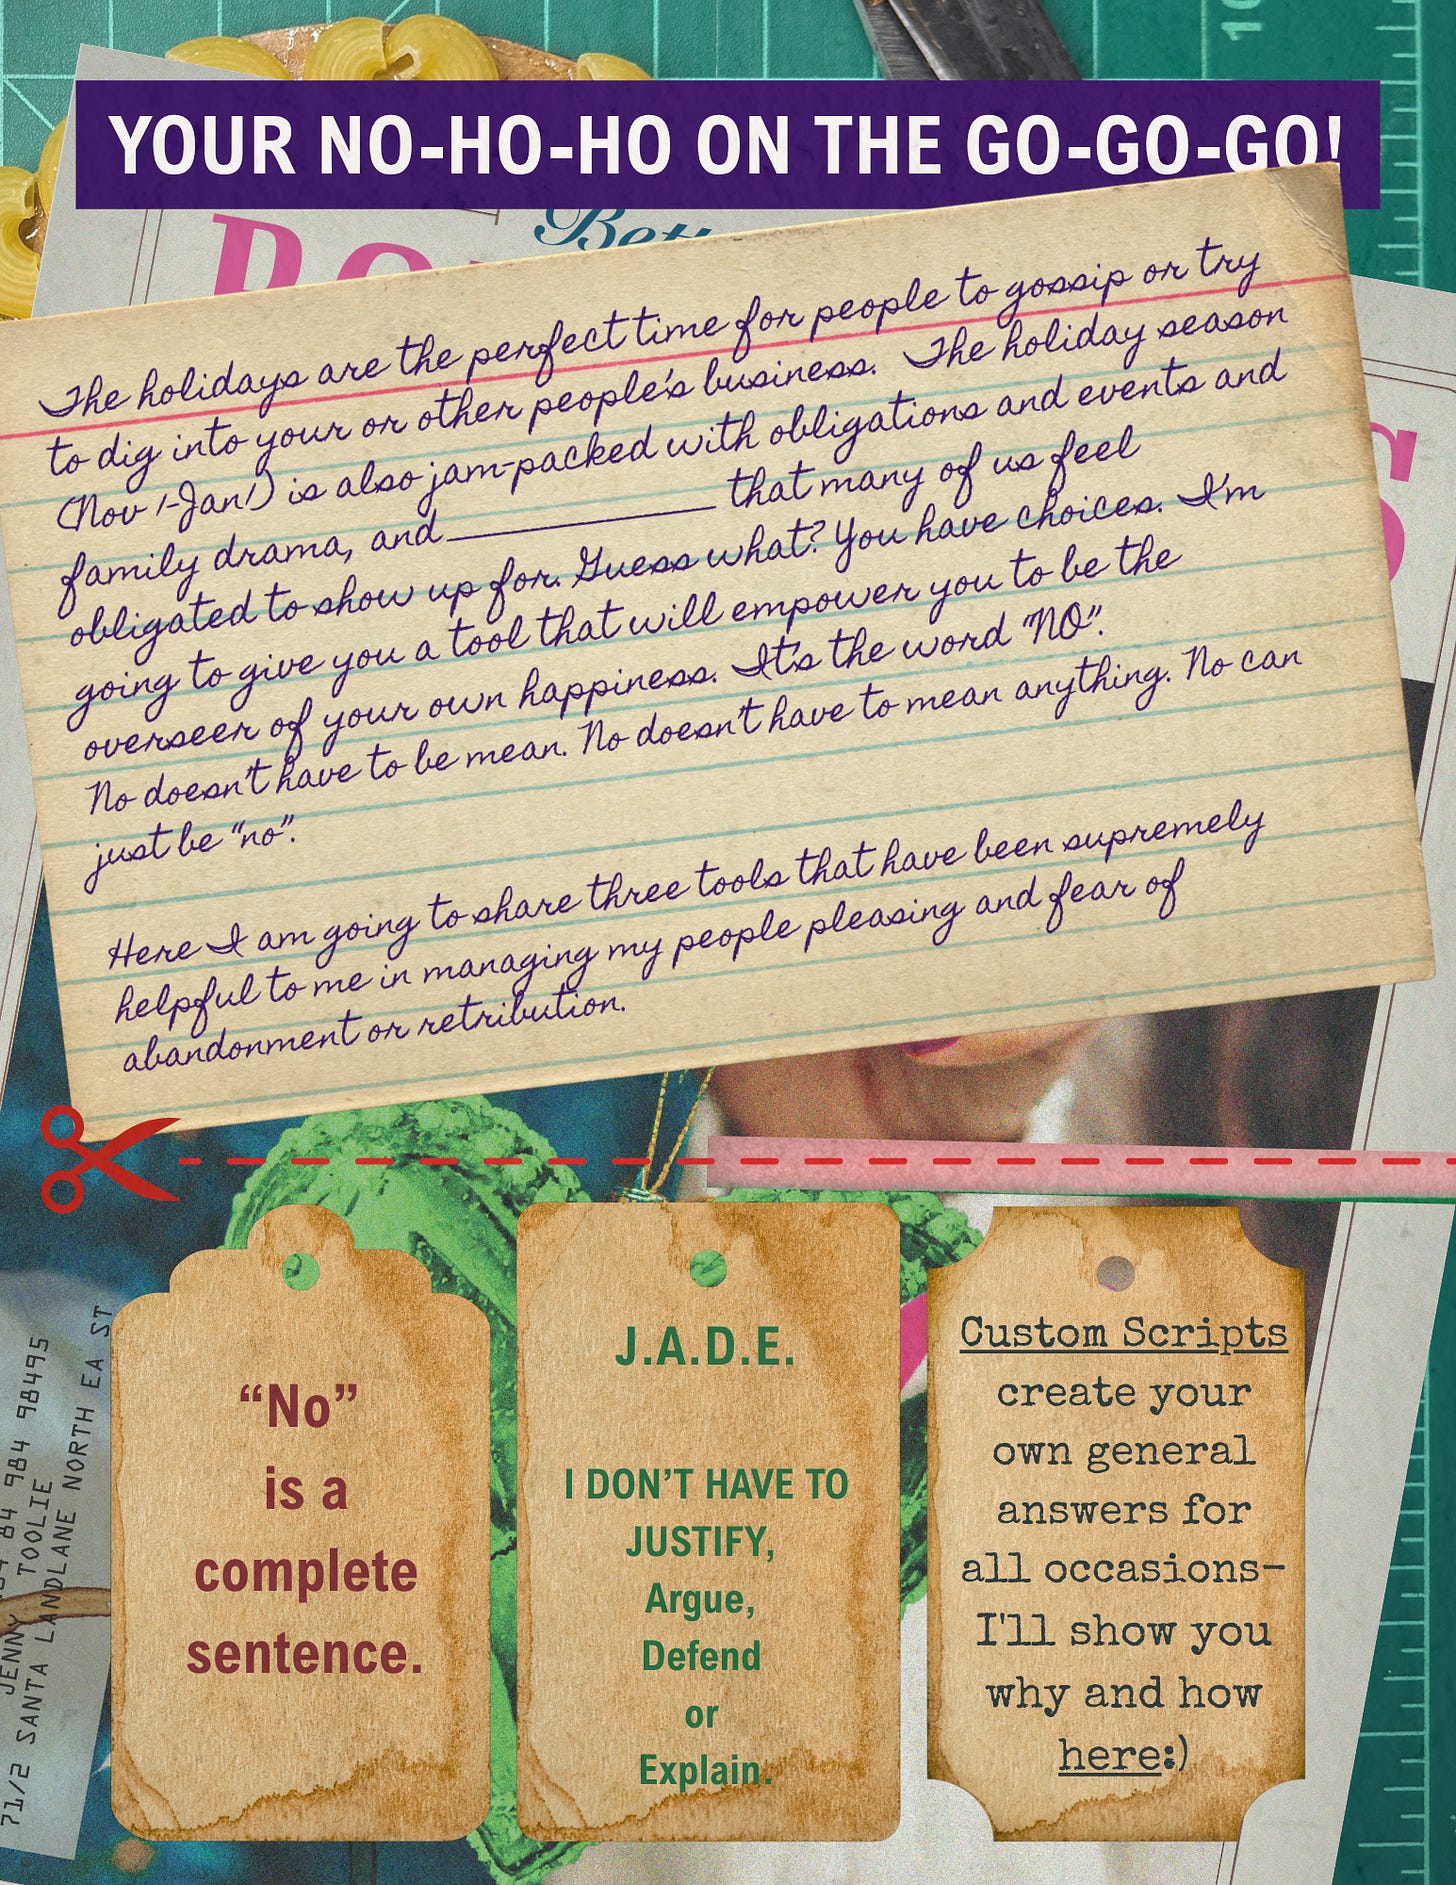 YOUR NO-HO-HO ON THE GO-GO-GO!
The holidays are the perfect time for people to gossip or try
to dig into your or other people's business. The holiday season
(Nov 1-Jan1) is also jam-packed with obligations and events and
family drama, and____________ that many of us feel
obligated to show up for. Guess what? You have choices. I'm
going to give you a tool that will empower you to be the
overseer of your own happiness. It's the word "NO".
No doesn't have to be mean. No doesn't have to mean anything. No can
just be "no".
Here I am going to share three tools that have been supremely
helpful to me in managing my people pleasing and fear of
abandonment or retribution.
“No”
is a
complete
sentence.
J.A.D.E.
I DON’T HAVE TO
JUSTIFY,
Argue,
Defend
or
Explain.
Custom Scripts
create your
own general
answers for
all occasions-
I'll show you
why and how
here:)
84 984 984 98495
JENNY TOOLIE
71/2 SANTA LANDLANE NORTH EA ST
10